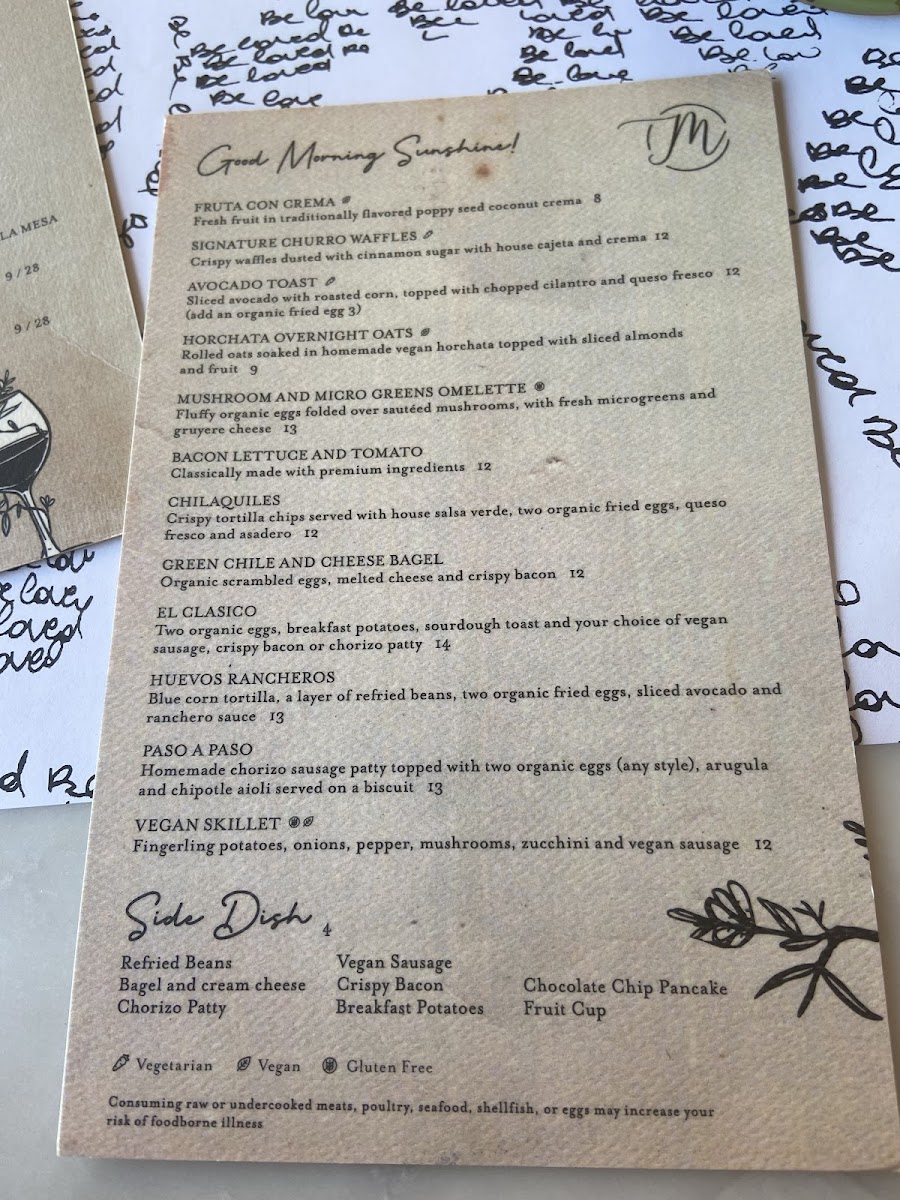 Be love
Be loved Be
Be loved
Be love
Be loved
Be love
Be loved
LA MESA
9 / 28
9 / 28
Good Morning Sunshine!
M
FRUTA CON CREMA
Fresh fruit in traditionally flavored poppy seed coconut crema 8
SIGNATURE CHURRO WAFFLES
Crispy waffles dusted with cinnamon sugar with house cajeta and crema 12
AVOCADO TOAST
Sliced avocado with roasted corn, topped with chopped cilantro and queso fresco 12
(add an organic fried egg 3)
HORCHATA OVERNIGHT OATS
Rolled oats soaked in homemade vegan horchata topped with sliced almonds
and fruit 9
MUSHROOM AND MICRO GREENS OMELETTE
Fluffy organic eggs folded over sautéed mushrooms, with fresh microgreens and
gruyere cheese 13
BACON LETTUCE AND TOMATO
Classically made with premium ingredients 12
CHILAQUILES
Crispy tortilla chips served with house salsa verde, two organic fried eggs, queso
fresco and asadero 12
GREEN CHILE AND CHEESE BAGEL
Organic scrambled eggs, melted cheese and crispy bacon 12
EL CLASICO
Two organic eggs, breakfast potatoes, sourdough toast and your choice of vegan
sausage, crispy bacon or chorizo patty 14
HUEVOS RANCHEROS
Blue corn tortilla, a layer of refried beans, two organic fried eggs, sliced avocado and
ranchero sauce 13
PASO A PASO
Homemade chorizo sausage patty topped with two organic eggs (any style), arugula
and chipotle aioli served on a biscuit 13
VEGAN SKILLET
Fingerling potatoes, onions, pepper, mushrooms, zucchini and vegan sausage 12
Side Dish 4
Refried Beans Vegan Sausage
Bagel and cream cheese Crispy Bacon Chocolate Chip Pancake
Chorizo Patty Breakfast Potatoes Fruit Cup
Vegetarian Vegan Gluten Free
Consuming raw or undercooked meats, poultry, seafood, shellfish, or eggs may increase your
risk of foodborne illness